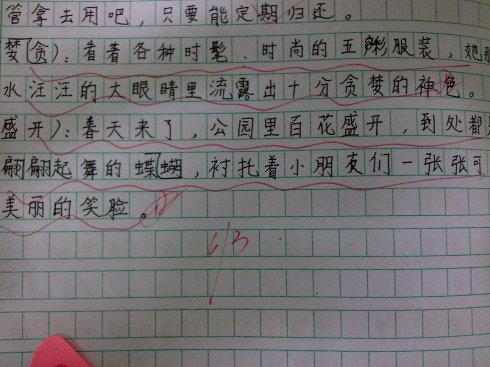 管拿去用吧，只要能定期归还。
婪(贪)：看着各种时髦、时尚的五彩服装，她
水汪汪的大眼睛里流露出十分贪婪的神色。
盛开)：春天来了，公园里百花盛开，到处都
翩翩起舞的蝴蝶，衬托着小朋友们一张张可
美丽的笑脸。